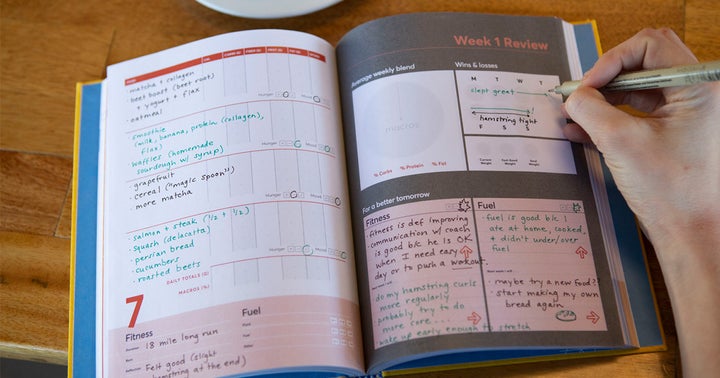 FOOD
CAL
CARBS (G)
PROT (G)
FAT (G)
matcha + collagen
• beet boost (beet root)
+ yogurt + flax
• oatmeal
Hunger
Mood
smoothie
(milk, banana, protein (collagen),
flax)
Waffles (homemade
sourdough w/ syrup)
Hunger
Mood
• grapefruit
• cereal ("magic spoon")
• more matcha
Hunger
Mood
• salmon + steak (1/2 + 1/2)
• squash (delacatta)
• persian bread
• cucumbers
• roasted beets
Hunger
Mood
DAILY TOTALS (G)
MACROS (%)
7
Fitness
18 mile long run
Felt good (slight
hamstring at the end)
Fuel
Week 1 Review
Average weekly blend
macros
% Carbs
% Protein
% Fat
Wins & losses
M T W T
slept great
hamstring tight
F S S
Current Weight
Goal Weight
For a better tomorrow
Fitness
• fitness is def improving
• communication w/ coach
is good b/c he is OK
when I need easy
day or to push a workout.
do my hamstring curls
more regularly
• probably try to do
more core...
• wake up early enough to stretch
Fuel
• fuel is good b/c I
ate at home, cooked,
+ didn't under/over
fuel
Next week I will
• maybe try a new food?
• start making my own
bread again